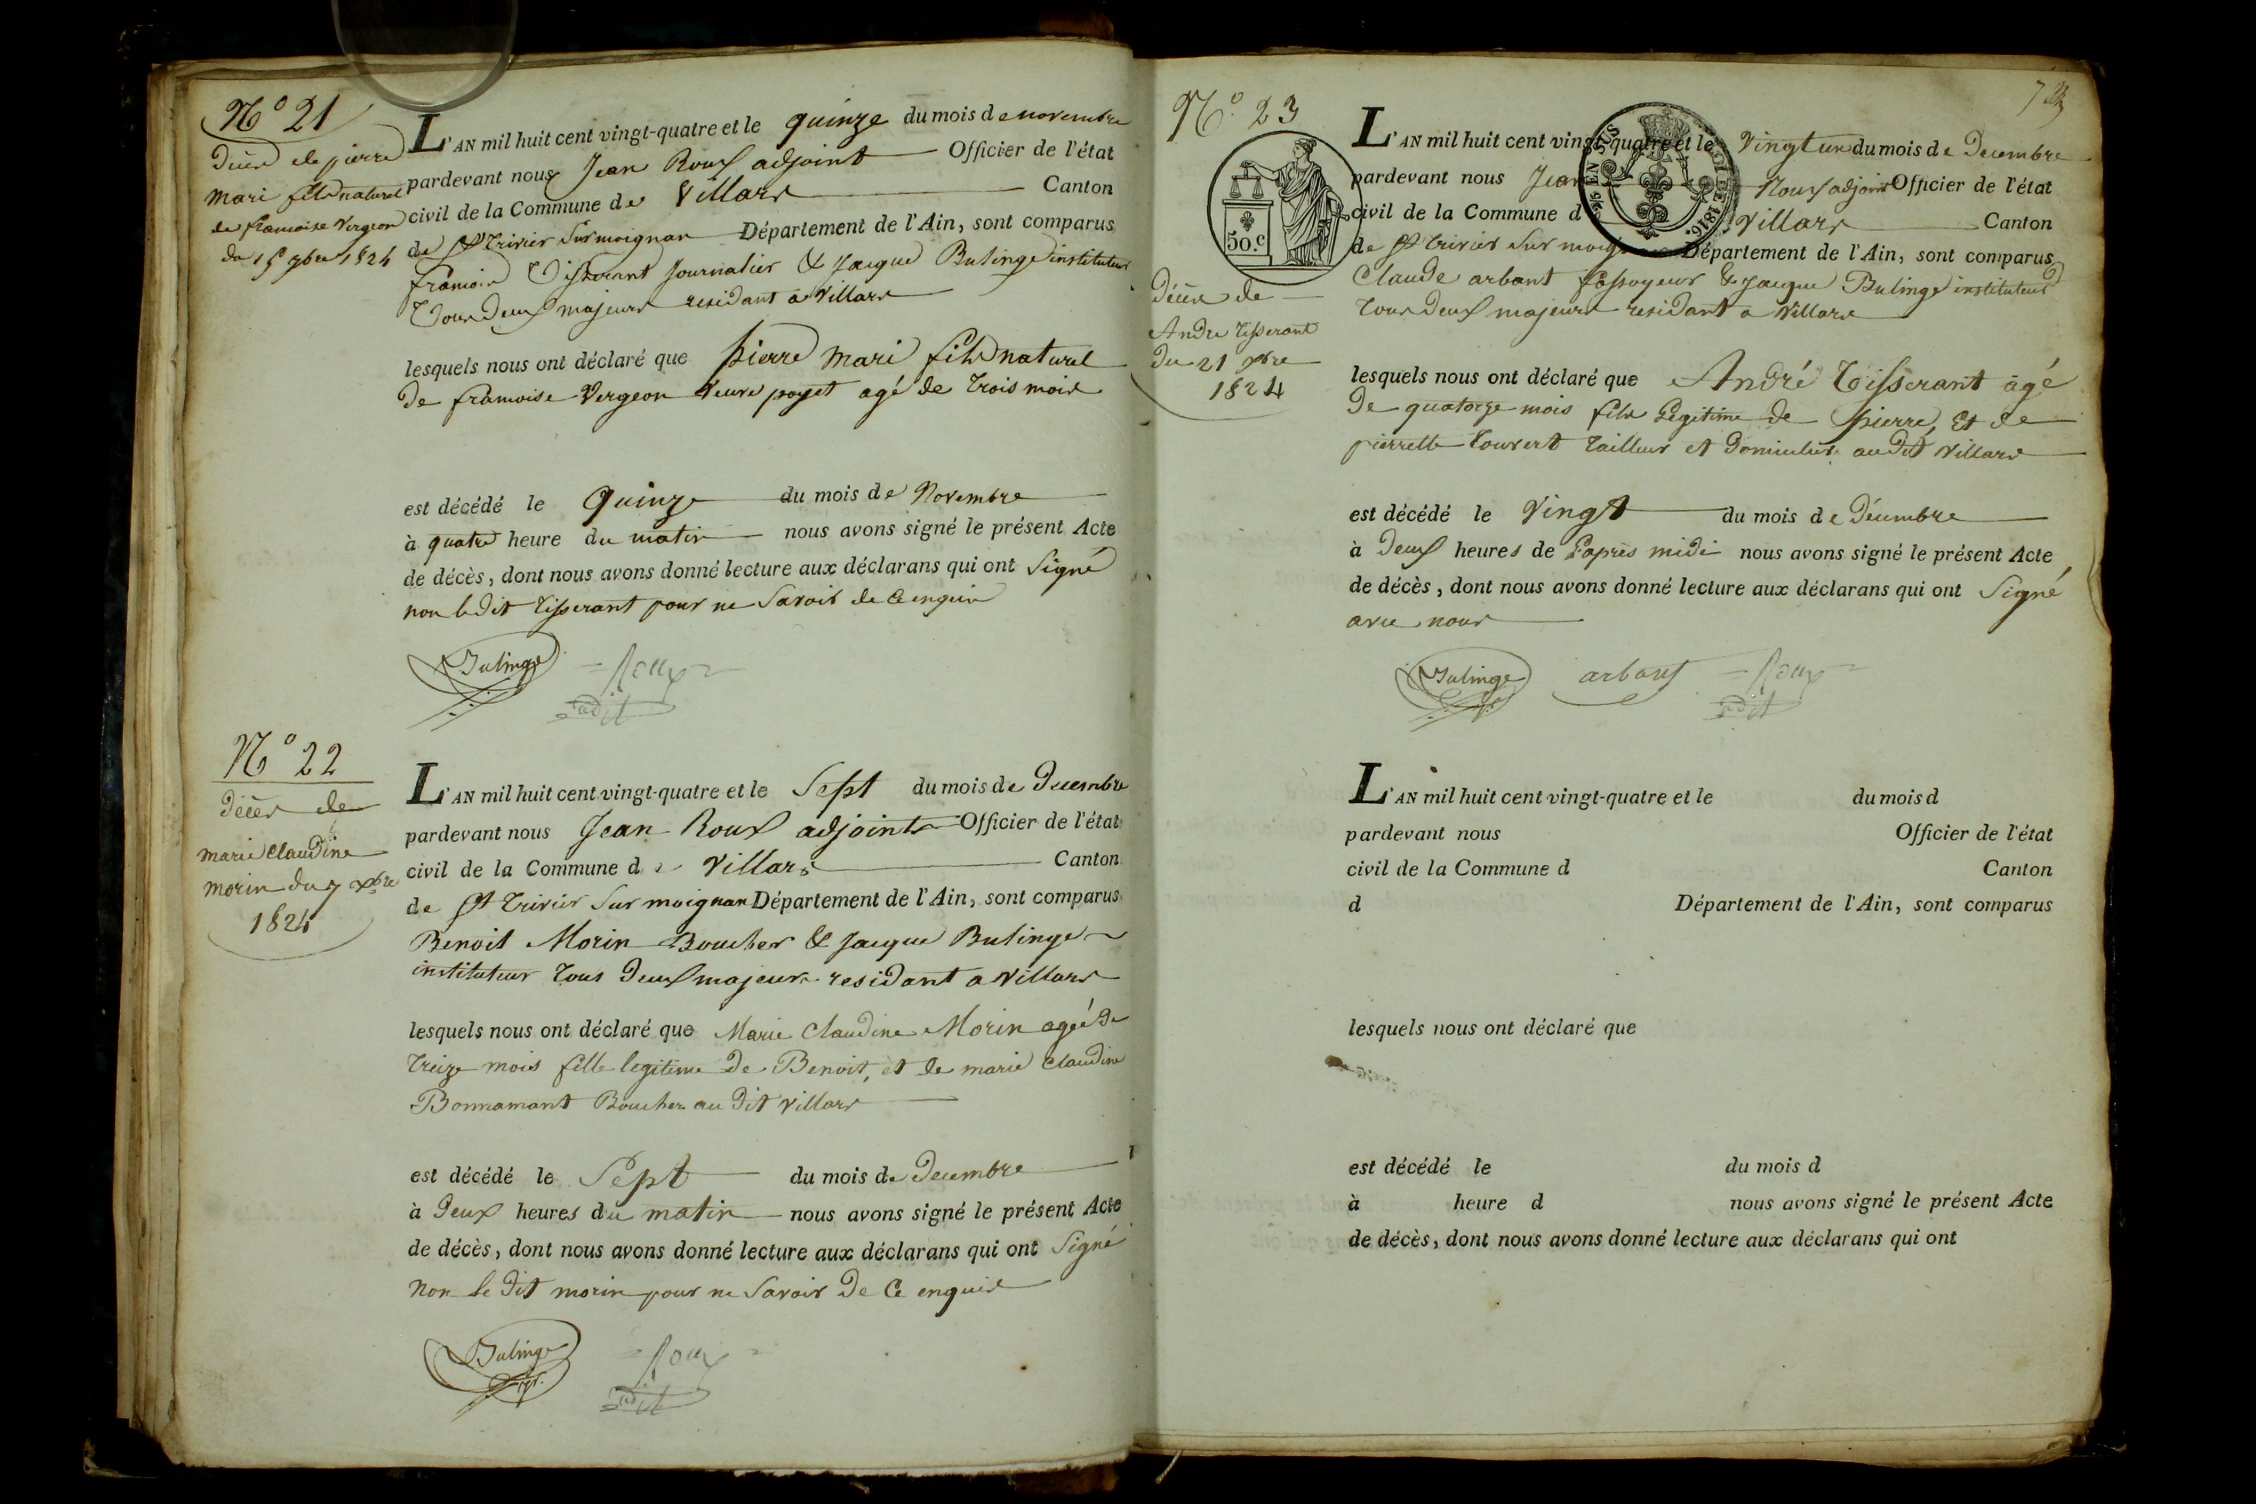 N.o 21
Décès de pierre
mari fils naturel
de francoise Vergeon
du 15 9bre 1824
L'AN mil huit cent vingt-quatre et le quinze du mois de novembre
pardevant nous Jean Roux adjoint Officier de l'état
civil de la Commune de Villars Canton
de St trivier Sur moignan Département de l'Ain, sont comparus
francois Tisserant Journalier & Jacque Bulinge instituteur
Tous Deux majeurs residant a Villars
lesquels nous ont déclaré que pierre mari fils naturel
De francoise Vergeon Veuve poyet agé de trois mois
est décédé le Quinze du mois de Novembre
à quatre heure du matin nous avons signé le présent Acte
de décès, dont nous avons donné lecture aux déclarans qui ont Signé
non le dit tisserant pour ne Savoir de Ce enquis
Bulinge Roux
adjt
N.o 22
Décès de
marie Claudine
morin du 7 xbre
1824
L'AN mil huit cent vingt-quatre et le Sept du mois de Decembre
pardevant nous Jean Roux adjoint Officier de l'état
civil de la Commune de Villars Canton
de St trivier Sur moignan Département de l'Ain, sont comparus
Benoit Morin Boucher & Jacque Bulinge
instituteur tous Deux majeurs residant a Villars
lesquels nous ont déclaré que Marie Claudine Morin agée De
treize mois fille legitime De Benoit, et de marie Claudine
Bonnamant Boucher au Dit Villars
est décédé le Sept du mois de Decembre
à Deux heures du matin nous avons signé le présent Acte
de décès, dont nous avons donné lecture aux déclarans qui ont Signé
Non le Dit morin pour ne Savoir De Ce enquis
Bulinge Roux
adjt
N.o 23
50.c
EN SUS
DE 1816.
Décès de
Andre tisserant
Du 21 xbre
1824
L'AN mil huit cent vingt-quatre et le Vingt un du mois de Decembre
pardevant nous Jean Roux adjoint Officier de l'état
civil de la Commune d Villars Canton
de St trivier Sur moig Département de l'Ain, sont comparus
Claude arbant fossoyeur & Jacque Bulinge instituteur
tous Deux majeurs residant a Villars
lesquels nous ont déclaré que André Tisserant agé
De quatorze mois fils Legitime de pierre, Et de
pierrette touvert tailleur et Domicilié au Dit Villars
est décédé le Vingt du mois de Décembre
à Deux heures de L'après midi nous avons signé le présent Acte
de décès, dont nous avons donné lecture aux déclarans qui ont Signé
avec nous
Bulinge arbant Roux
adjt
L'AN mil huit cent vingt-quatre et le du mois d
pardevant nous Officier de l'état
civil de la Commune d Canton
d Département de l'Ain, sont comparus
lesquels nous ont déclaré que
est décédé le du mois d
à heure d nous avons signé le présent Acte
de décès, dont nous avons donné lecture aux déclarans qui ont